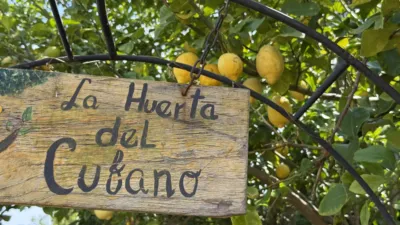 La Huerta
del
Cubano